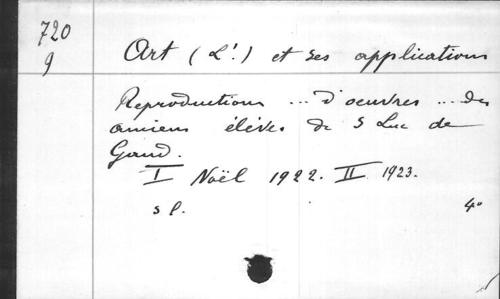 720
9
Art (L'.) et ses applications
Reproductions ... d'oeuvres ... des
anciens élèves de S Luc de
Gand.
I Noël 1922. II 1923.
s l. 4°